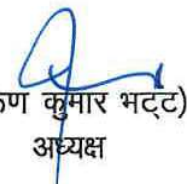 कुमार भट्ट)
अध्यक्ष